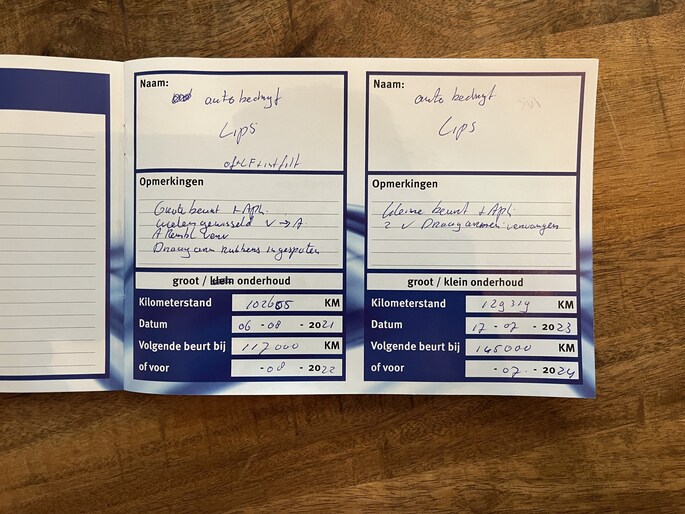 Naam:
auto bedryf
Lips
of+LF+intfilt
Opmerkingen
Grote beurt + Apk.
wielen gewisseld V → A.
A Rembl verv
Draagarm rubbers ingespoten
groot / klein onderhoud
Kilometerstand 102605 KM
Datum 06 - 08 - 2021
Volgende beurt bij 117000 KM
of voor - 08 - 2022
Naam:
auto bedryf
Lips
Opmerkingen
kleine beurt + Apk.
2 V Draagarmen vervangen
groot / klein onderhoud
Kilometerstand 129319 KM
Datum 17 - 07 - 2023
Volgende beurt bij 145000 KM
of voor - 07 - 2024